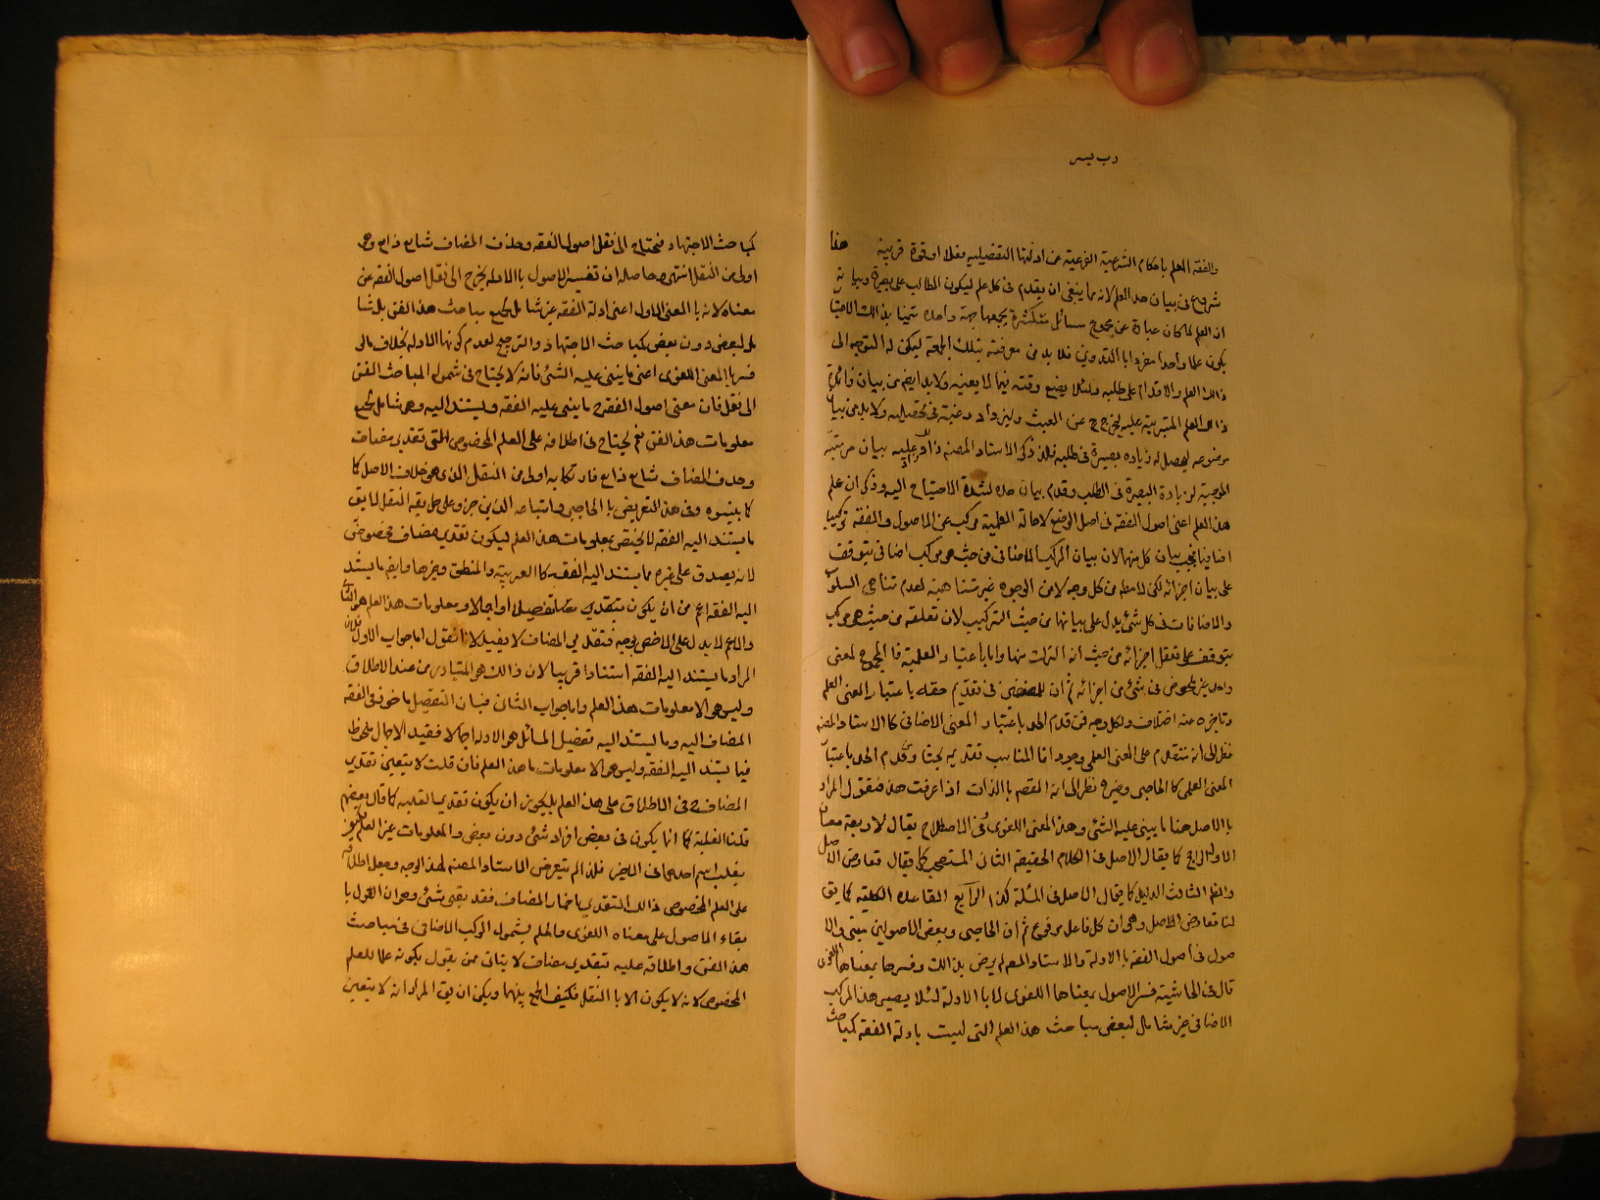 رب يسر
والفقه العلم باحكام الشرعية الفرعية عن ادلتها التفصيلية فعلا او قوة قريبة هذا
شروع فى بيان حد العلم لانه مما ينبغى ان يقدم فى كل علم ليكون الطالب على بصيرة
ان العلم لما كان عبارة عن مسائل متكثرة يجمعها جهة واحدة
يكون علما واحدا مفردا بالتدوين فلا بد من معرفته بتلك الجهة ليمكن له التوجه الى
ذالك العلم والاقدام على طلبه ولئلا يضيع وقته فيما لا يعنيه ولا بد ايضا من بيان فائدة
ذالك العلم المترتبة عليه ليخرج عن العبث وليزداد رغبته فى تحصيله ولا بد من بيان
موضوعه ليحصل له زيادة بصيرة فى طلبه فلذا ذكر الاستاد المص بيان مرتبة
الموجبة لزيادة البصيرة فى الطلب وقدم بيان حده لشدة الاحتياج اليه وذكر ان علم
هذا العلم اعنى اصول الفقه فى اصل الوضع مركب عن الاصول والفقه تركيبا
اضافيا فيجب بيان كل منها لان بيان المركب الاضافى من حيث هو مركب اضافى يتوقف
على بيان اجزائه لكن لا مطلقا من كل وجه لان الوجوه غير متناهية لعدم تناهى السلوب
والاضافات فى كل شئ بل على بيانها من حيث التركيب لان تعلقه من حيث هو مركب
يتوقف على تعقل اجزائه من حيث انه التركب منها واما باعتبار العلمية فالمجموع لمعنى
واحد من غير فى شئ من اجزائه ثم ان فى تقديم حده باعتبار المعنى العلمى
وتاخره عنه اختلاف ولكل وجه فمن قدم الحد باعتبار المعنى الاضافى كالاستاد المص
نظر الى انه متقدم على المعنى العلمى وجودا فالمناسب تقديمه بحثا وقدم الحد باعتبار
المعنى العلمى كالحاجبى وغيره نظر الى انه المقصد بالذات اذا عرفت هذا فنقول المراد
بالاصل هنا ما يبنى عليه الشئ وهذا المعنى اللغوى وفى الاصطلاح يقال لاربعة معان
الاول الراجح كما يقال الاصل فى الكلام الحقيقة الثانى المستصحب كما يقال تعارض الاصل
والظاهر الثالث الدليل كما يقال الاصل فى المسئلة كذا الرابع القاعدة الكلية كما يق
لنا قاعدة هى الاصل وهى ان كل فاعل مرفوع ثم ان الحاجبى وبعض الاصوليين
صول فى اصول الفقه بالادلة والاستاد المص لم يرض بذالك وفسرها بمعناها اللغوى
قال فى الحاشية فسر الاصول بمعناها اللغوى لا بالادلة لئلا يصير هذا المركب
الاضافى غير شامل لبعض مباحث هذا العلم التى ليست بادلة الفقه كمباحث
كمباحث الاجتهاد فنحتاج الى نقل اصول الفقه وحذف المضاف شايع ذايع وهو
اولى من النقل انتهى وحاصله ان تفسير الاصول بالادلة يحوج الى نقل اصول الفقه عن
معناه لانه بالمعنى الاول اعنى ادلة الفقه غير شامل لجميع مباحث هذا الفن بل شا
مل لبعض دون بعض كمباحث الاجتهاد والترجيح لعدم كونها ادلة بخلاف ما لو
فسر بالمعنى اللغوى اعنى ما يبتنى عليه الشئ فانه لا يحتاج فى شمول المباحث الفن
الى نقل فان معنى اصول الفقه ح ما يبتنى عليه الفقه ويستند اليه وهو شامل لجميع
معلومات هذا الفن نعم يحتاج فى اطلاقه على العلم المخصوص الى تقدير مضاف
وحذف المضاف شايع ذايع فارتكابه اولى من النقل الذى هو خلاف الاصل كما
كما بينوه وفى هذا التعريض بالحاجبى واتباعه الذين جروا على طريقة النقل لا يق
ما يستند اليه الفقه لا يختص بمعلومات هذا العلم ليكون تقدير مضاف مخصوص
لانه يصدق على غيره مما يستند اليه الفقه كالعربية والمنطق وغيرها وايضا ما يستند
اليه الفقه اعم من ان يكون تفصيلى او اجمالا ومعلومات هذا العلم هو الثانى
والاعم لا يدل على الاخص بوجه فتقدير المضاف لا يفيد لانا نقول اما جواب الاول فلان
المراد ما يستند اليه الفقه استنادا قريبا لان ذالك هو المتبادر من عند الاطلاق
وليس هو الا معلومات هذا العلم واما جواب الثانى فبان التفصيل ماخوذ فى الفقه
المضاف اليه وما يستند اليه تفصيل المسائل هو الادلة اجمالا فقيد الاجمال ملحوظ
فيما يستند اليه الفقه وليس هو الا معلومات هذا العلم فان قلت لا يتعين تقدير
المضاف ح فى الاطلاق على هذا العلم بل يجوز ان يكون تقديره بالغلبة كما قال بعضهم
قلنا الغلبة انما يكون فى بعض افراد شئ دون بعض والمعلومات غير العلم
يغلب اسم احدهما فى الاخر فلذا لم يتعرض الاستاد المص لهذا الوجه وجعل اطلاقه
على العلم المخصوص ذالك التقدير باضمار المضاف فقد بقى شئ وهو ان القول با
بقاء الاصول على معناه اللغوى والعلم بشمول المركب الاضافى فى مباحث
هذا الفن واطلاقه عليه بتقدير مضاف لا يتاتى ممن يقول بكونه علما للعلم
المخصوص لانه لا يكون الا بالنقل فكيف الجمع بينهما ويمكن ان يق المراد انه لا يتعين